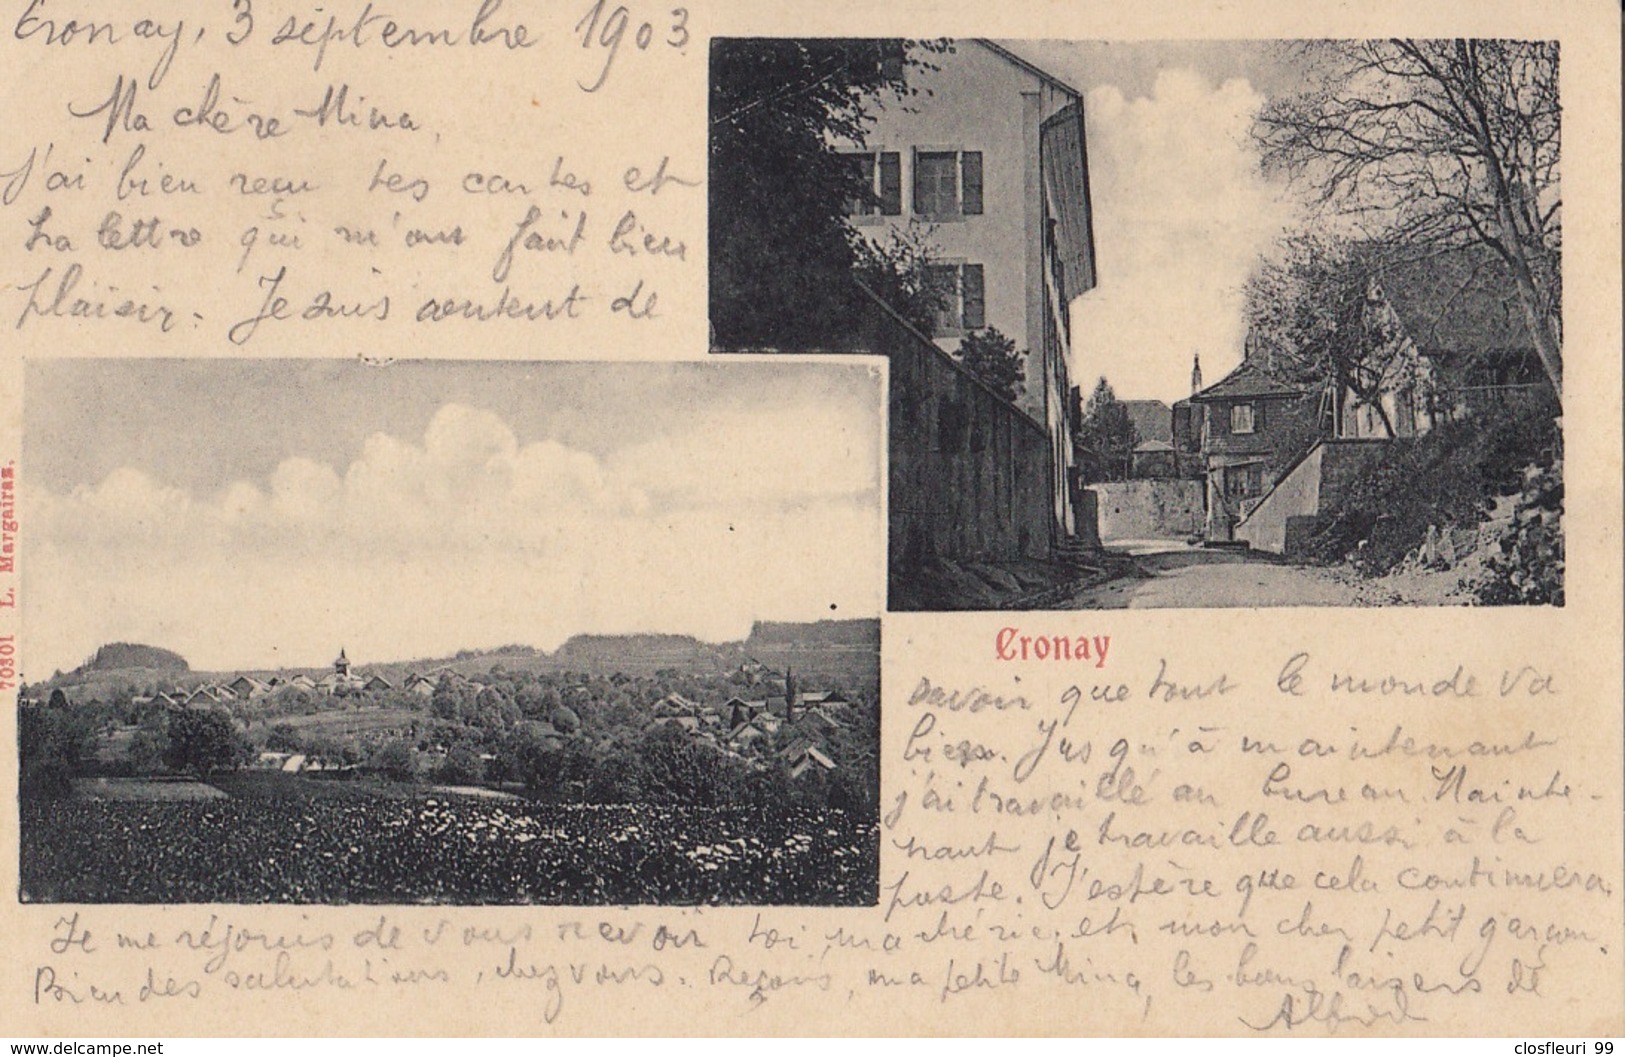 Cronay, 3 septembre 1903
Ma chère Mina,
J'ai bien reçu tes cartes et
ta lettre qui m'ont fait bien
plaisir. Je suis content de
70301 L. Margairaz.
Cronay
savoir que tout le monde va
bien. Jusqu'à maintenant
j'ai travaillé au bureau. Mainte-
nant je travaille aussi à la
poste. J'espère que cela continuera.
Je me réjouis de vous revoir toi, ma chérie, et mon cher petit garçon.
Bien des salutations, chez vous. Reçois, ma petite Mina, les bons baisers de
Alfred
closfleuri 99